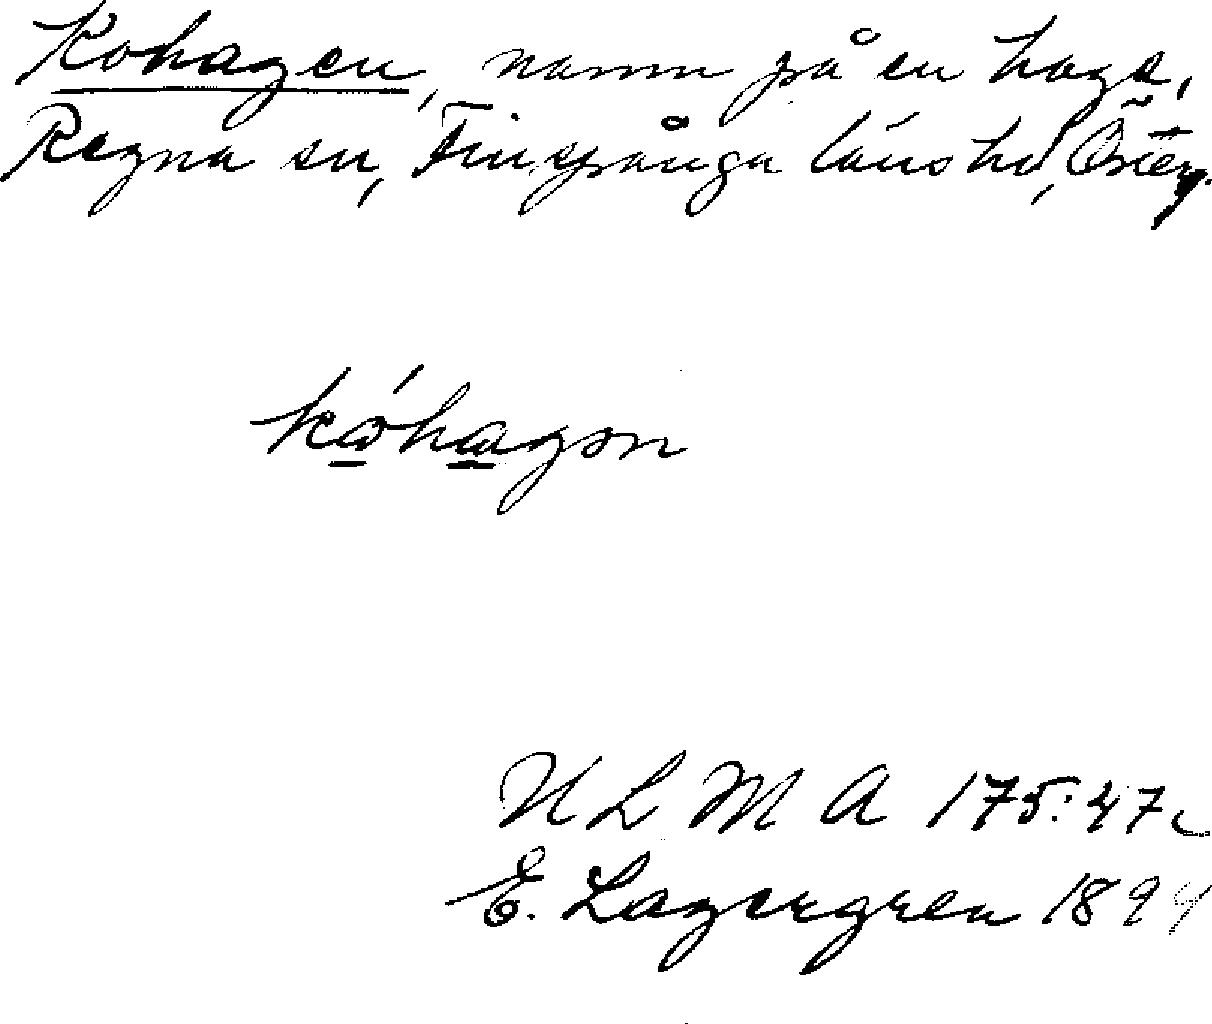 Kohagen, namn på en hage,
Regna sn, Finspånga länshd, Österg.
kώhagən
U L M A 175:47c
E. Lagergren 1894